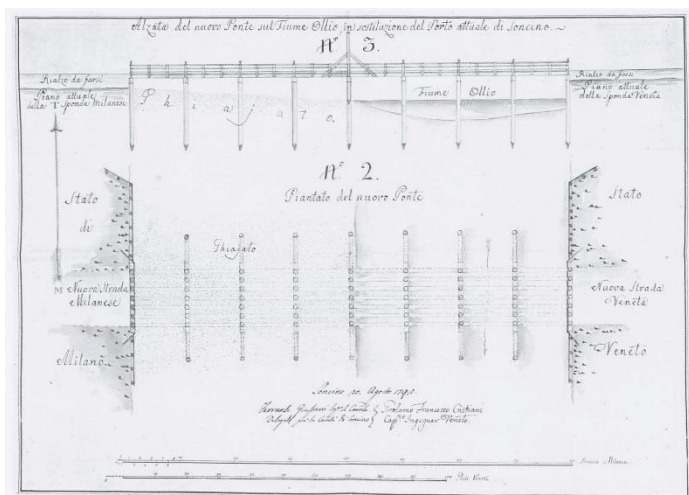 Alzata del nuovo Ponte sul Fiume Ollio in sostituzione del Porto attuale di Soncino.
N.º 3.
Rialzo da farsi
Piano attuale
della Sponda Milanese
Ghiajato
Fiume Ollio
Rialzo da farsi
Piano attuale
della Sponda Veneta
T
N.º 2.
Piantato del nuovo Ponte
Stato
di
Milano
Ghiajato
Stato
Veneto
M
Nuova Strada
Milanese
Nuova Strada
Veneta
Soncino 20. Agosto
Girolamo Francesco Cristiani
Cap.no Ingegner Veneto.